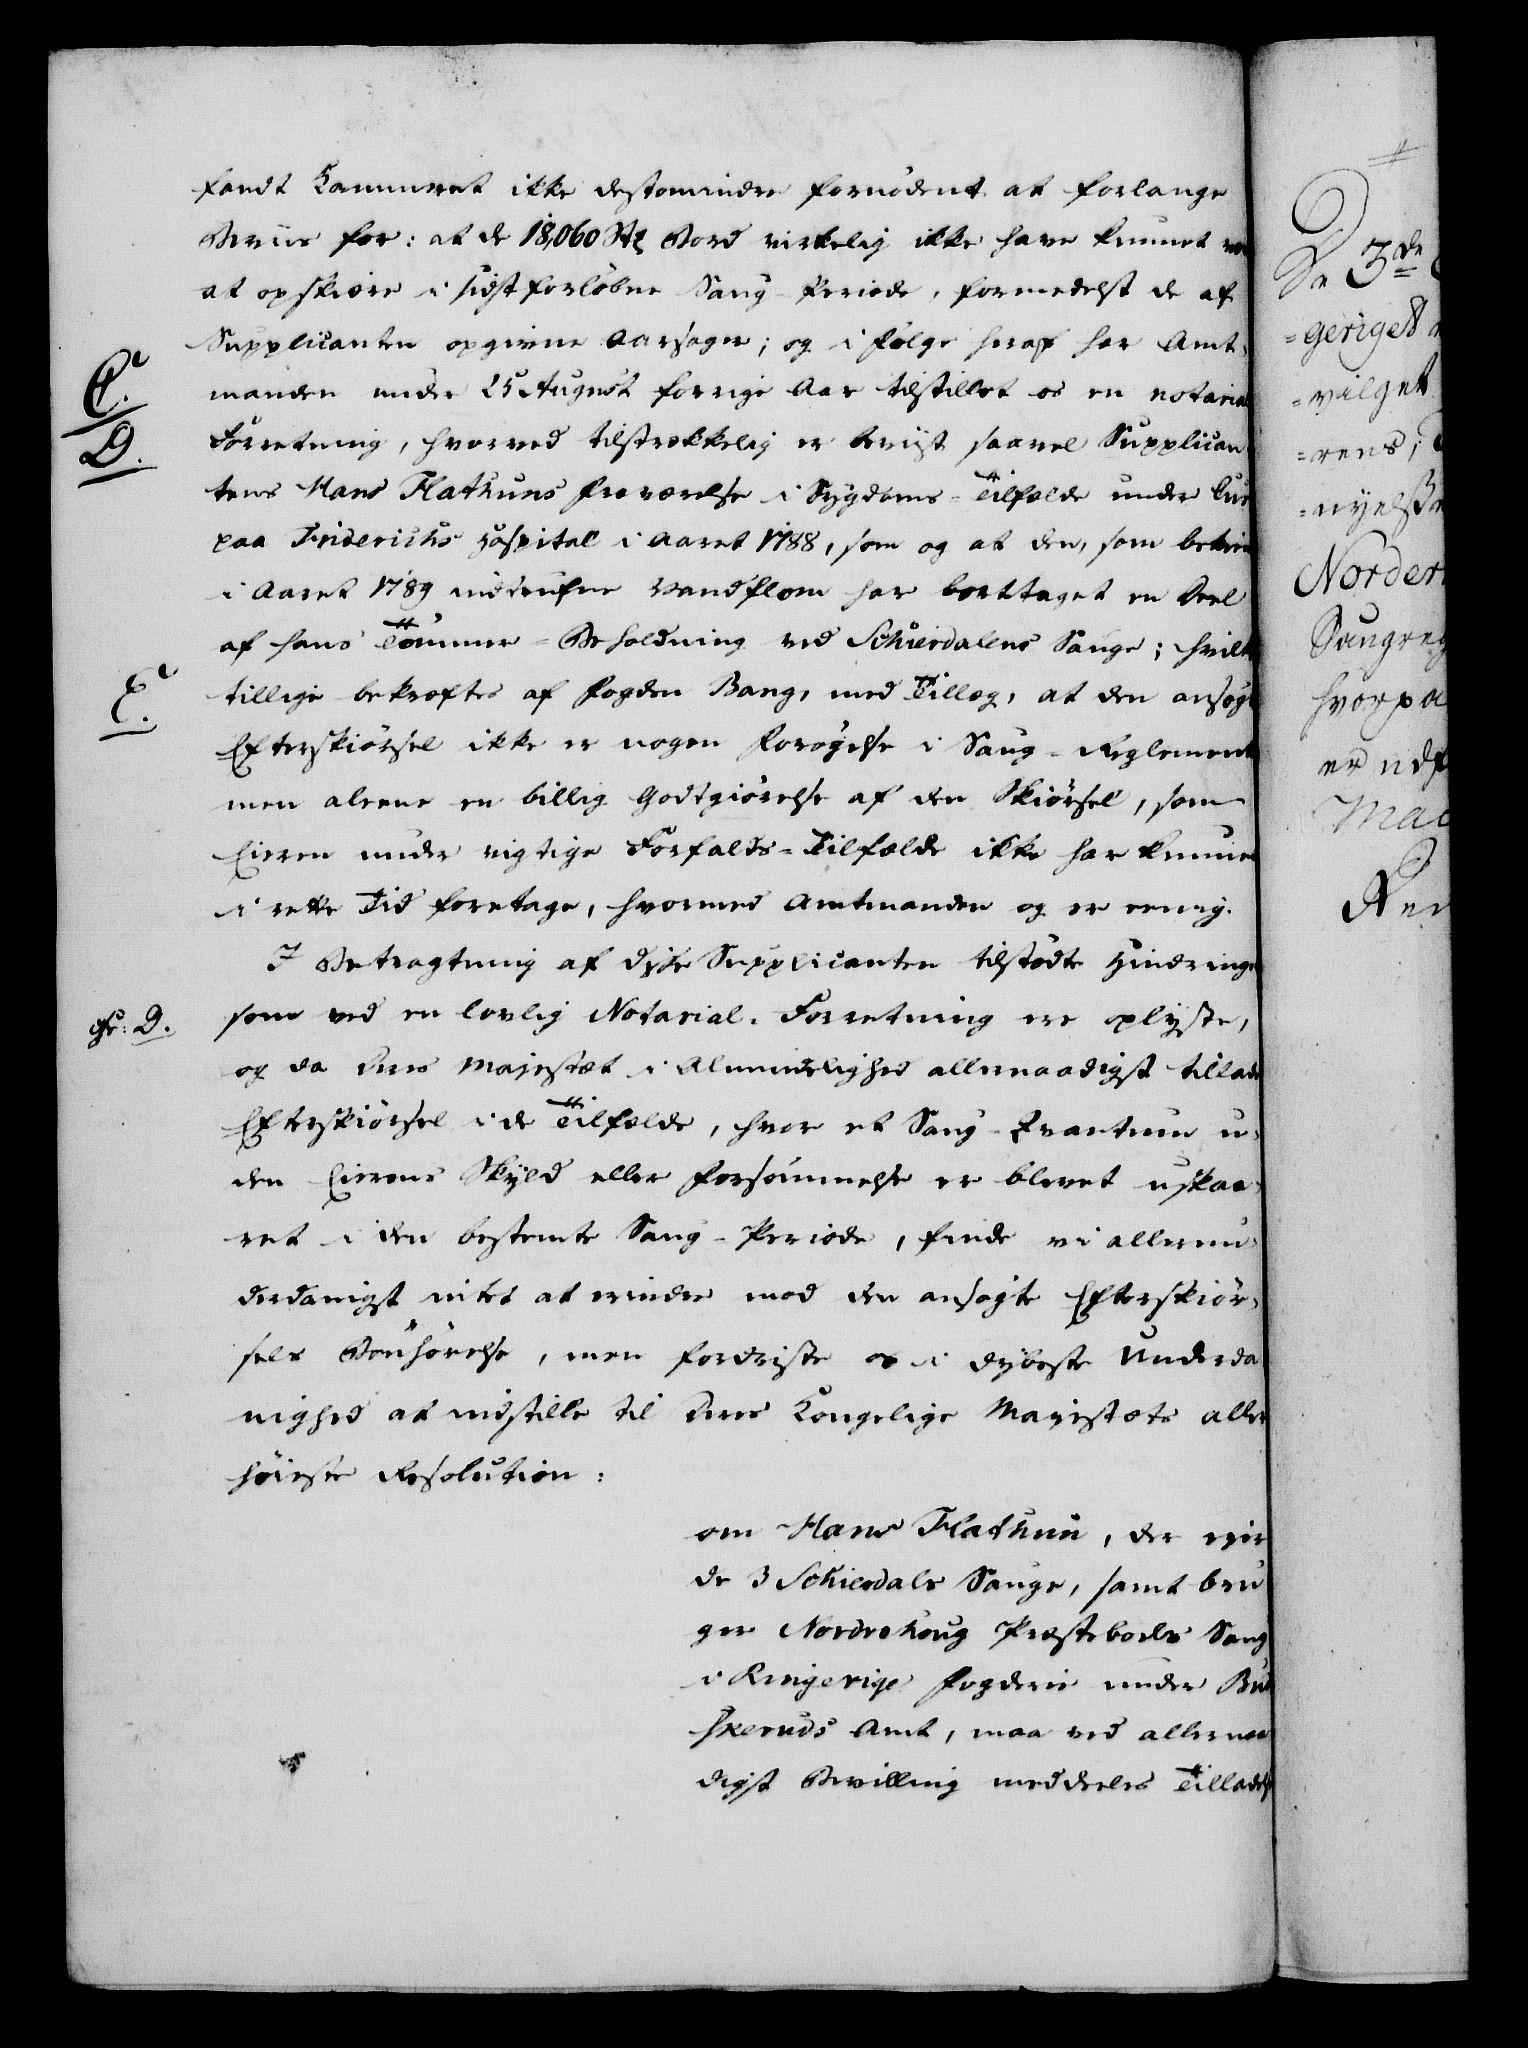 fandt Kammeret ikke destomindre fornødent at forlange
Beviis for: at de 18,060 Stk Bord virkelig ikke have kunnet
at opskiære i sidstforløbne Saug-Periode, formedelst de af
Supplicanten opgivne Aarsager; og i følge heraf har Amt-
C.
manden under 25 August forrige Aar tilstillet os en notarial
D.
Forretning, hvorved tilstrækkelig er beviist saavel Supplican
tens Hans Flathuns fraværelse i Sygdoms-Tilfælde under Cur
paa Friderichs Hospital i Aaret 1788, som og at den, som bekien
i Aaret 1789 indtrufne Vandflom har borttaget en Deel
af hans Tømmer-Beholdning ved Schierdalens Sauge; hvilket
E.
tillige bekræftes af fogden Bang, med Tillæg, at den ansøgte
Efterskiørsel ikke er nogen forøgelse i Saug-Reglement
men aleene en billig Godtgiørelse af den Skiørsel, som
Eieren under vigtige Forfalds-Tilfælde ikke har kunnet
i rette Tid foretage, hvormed Amtmanden og er eenig.
I Betragtning af disse Supplicanten tilstødte Hindringer
cfr: D.
som ved en lovlig Notarial-Forretning ere oplyste,
og da Deres Majestæt i Almindelighed allernaadigst tillade
Efterskiørsel i de Tilfælde, hvor et Saug-Qvantum u-
den Eierens Skyld eller forsømmelse er blevet uskaa-
ret i den bestemte Saug-Periode, finde vi allerun-
derdanigst intet at erindre mod den ansøgte Efterskiør-
sels Bønhørelse, men fordriste os i dybeste Underda
nighed at indstille til Deres Kongelige Majestæts aller
høieste Resolution:
om Hans Flathun, der eier
de 3 Schierdals Sauge, samt bru
ger Nordrehoug Præsteboels Saug
i Ringerige fogderie under Bu
skeruds Amt, maa ved allernaa
digst Bevilling meddeeles Tilladelse
De 3de
-geriget
-vilget
-rens,
-nyelse
Norder
Saugreg
hvorpa
er udf
Mac
Ren